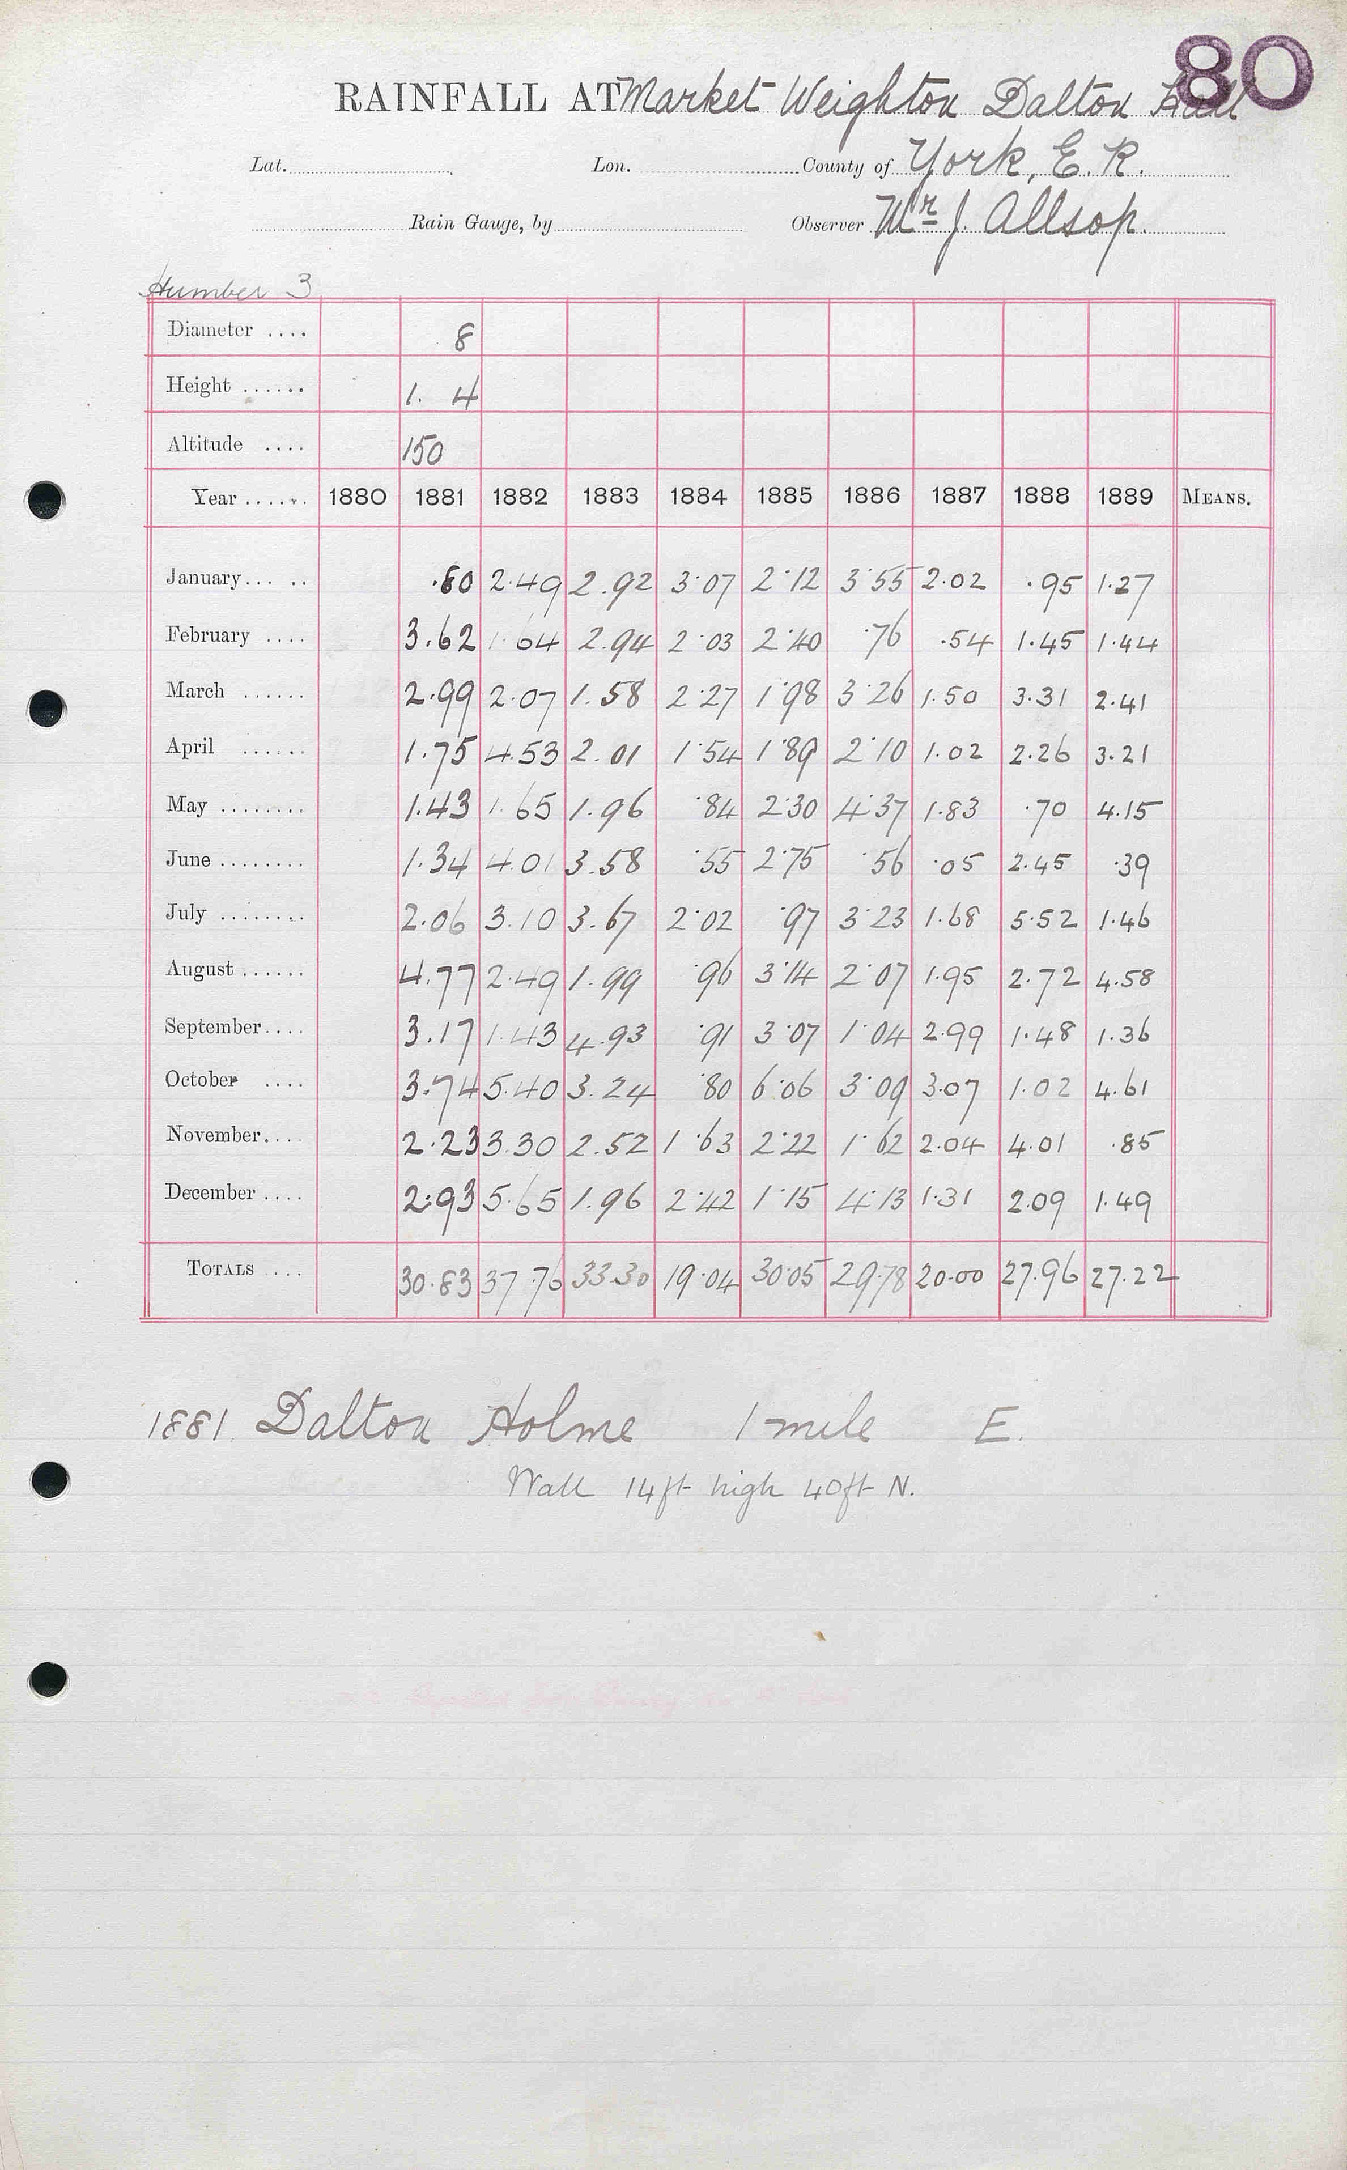 80
RAINFALL AT Market Weighton Dalton Hall
Lat. Lon. County of York, E. R.
Rain Gauge, by Observer Mr J. Allsop.
Humber 3
Diameter .... 8
Height ...... 1. 4
Altitude .... 150
Year ...... 1880 1881 1882 1883 1884 1885 1886 1887 1888 1889 MEANS.
January... .. .80 2.49 2.92 3.07 2.12 3.55 2.02 .95 1.27
February .... 3.62 1.64 2.94 2.03 2.40 .76 .54 1.45 1.44
March ...... 2.99 2.07 1.58 2.27 1.98 3.26 1.50 3.31 2.41
April ...... 1.75 4.53 2.01 1.54 1.89 2.10 1.02 2.26 3.21
May ........ 1.43 1.65 1.96 .84 2.30 4.37 1.83 .70 4.15
June ........ 1.34 4.01 3.58 .55 2.75 .56 .05 2.45 .39
July ........ 2.06 3.10 3.67 2.02 .97 3.23 1.68 5.52 1.46
August ...... 4.77 2.49 1.99 .96 3.14 2.07 1.95 2.72 4.58
September.... 3.17 1.43 4.93 .91 3.07 1.04 2.99 1.48 1.36
October .... 3.74 5.40 3.24 .80 6.06 3.09 3.07 1.02 4.61
November.... 2.23 3.30 2.52 1.63 2.22 1.62 2.04 4.01 .85
December .... 2.93 5.65 1.96 2.42 1.15 4.13 1.31 2.09 1.49
TOTALS ... 30.83 37.76 33.30 19.04 30.05 29.78 20.00 27.96 27.22
1881. Dalton Holme 1 mile E.
Wall 14ft high 40ft N.